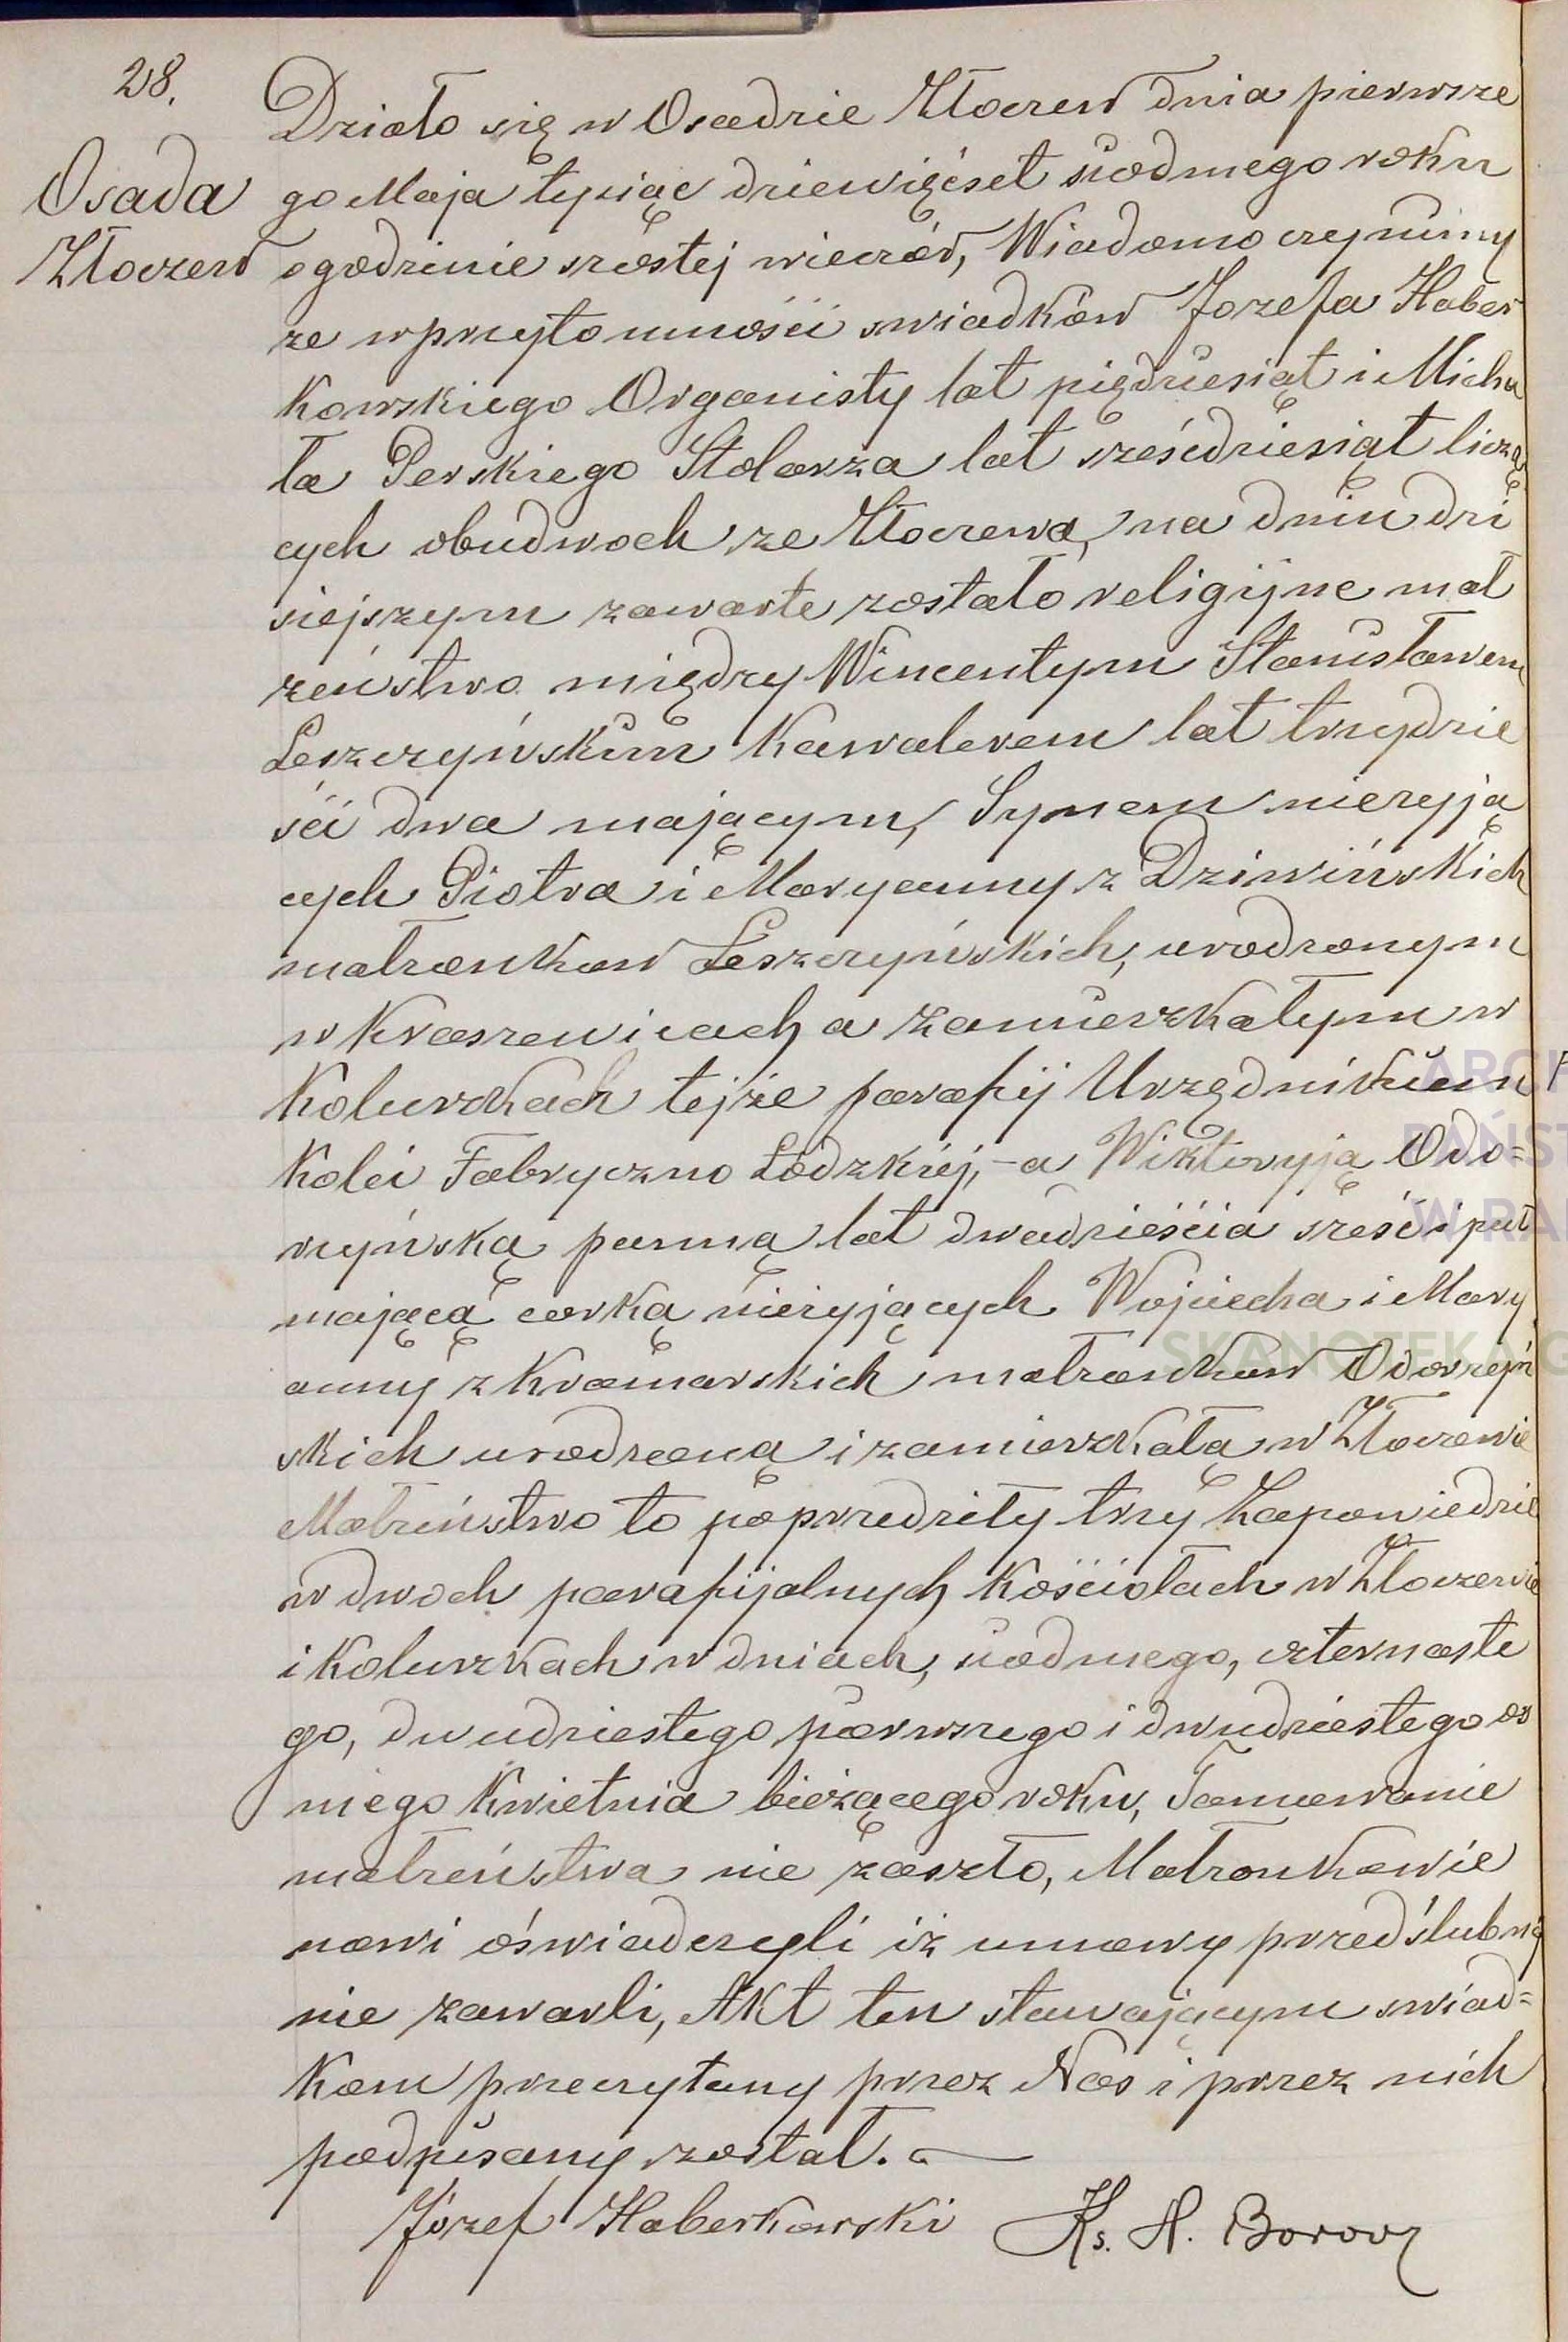 28.
Osada
Złoczew
Działo się w Osadzie Złoczew dnia pierwsze
go Maja tysiąc dziewięćset siódmego roku
o godzinie szóstej wieczór, Wiadomo czynimy
że w przytomności swiadków Jozefa Haber
kowskiego Organisty lat pięćdziesiąt i Micha
ła Perskiego Stolarza lat sześćdziesiąt liczą
cych obudwoch ze Złoczewa, na dniu dzi
siejszym zawarte zostało religijne mał
żeństwo między Wincentym Stanisławem
Leszczyńskim Kawalerem lat trzydzie
ści dwa mającym, Synem nieżyją
cych Piotra i Maryanny z Dziwińskich
małżonkow Leszczyńskich, urodzonym
w Kraszewicach a zamieszkałym w
Koluszkach tejże parafij Urzędnikiem
Kolei Fabryczno Łódzkiej, - a Wiktoryją Odo=
rzyńską panną lat dwadzieścia sześć i puł
mającą corką nieżyjących Wojciecha i Mary
anny z Kramarskich małżonkow Odorzyń
skich urodzoną i zamieszkałą w Złoczewie
Małżeństwo to poprzedziły trzy Zapowiedzie
w dwoch parafijalnych Kościołach w Złoczewie
i Koluszkach w dniach, siodmego, czternaste
go, dwudziestego pierwszego i dwudziestego os
mego Kwietnia bieżącego roku, Tamowanie
małżeństwa nie zaszło, Małżonkowie
nowi oświadczyli iż umowy przedślubnej
nie zawarli, Akt ten stawającym swiad=
kom przeczytany przez Nas i przez nich
podpisany został.
Józef Haberkowski Ks. A. Borow